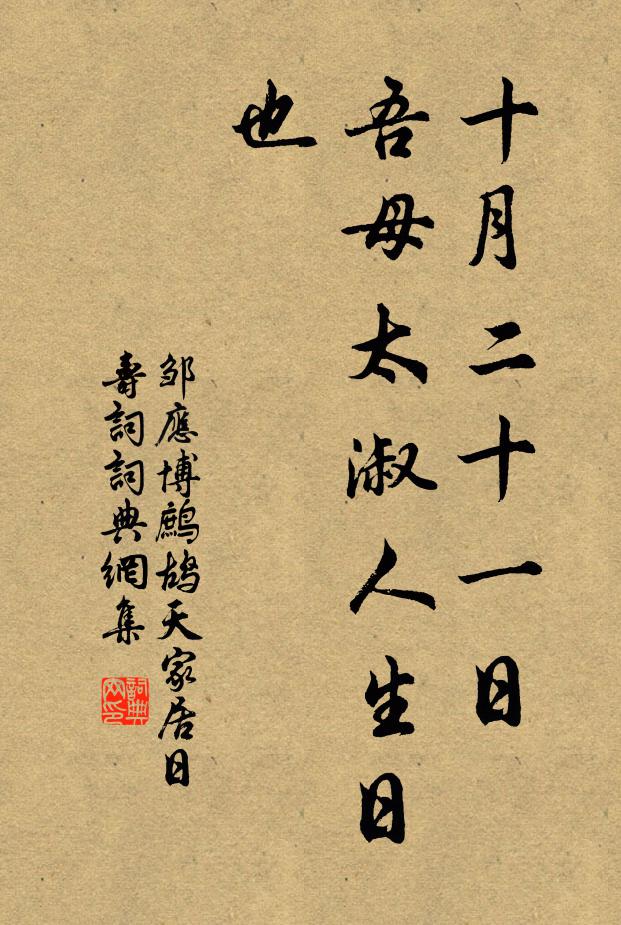 十月二十一日
吾母太淑人生日
也
邹應博鷓鴣天家居日
壽詞詞典網集
詞典
网印